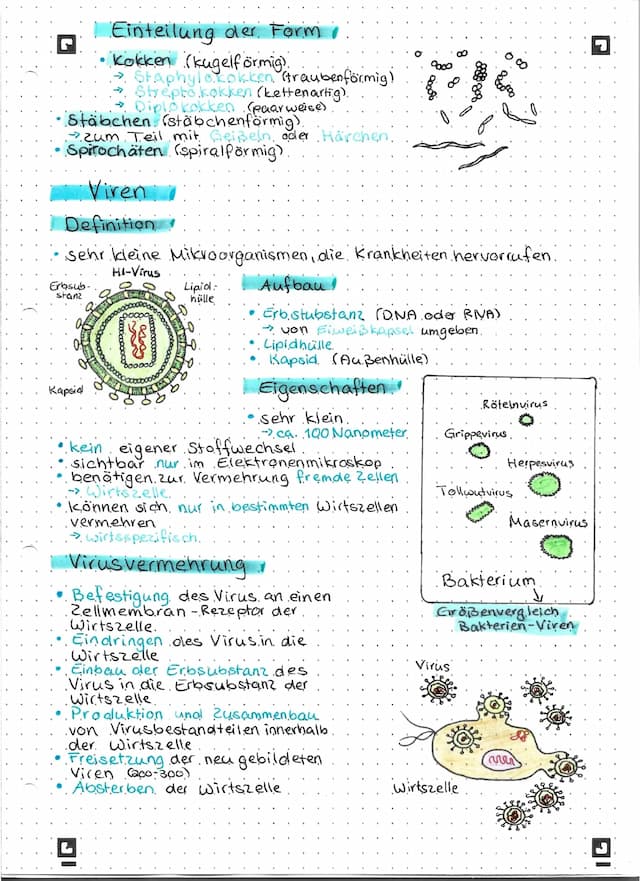 Einteilung der Form
• Kokken (kugelförmig)
→ Staphylokokken (traubenförmig)
→ Streptokokken (kettenartig)
→ Diplokokken (paarweise)
• Stäbchen (stäbchenförmig)
→ zum Teil mit Geißeln oder Härchen
• Spirochäten (spiralförmig)
Viren
Definition
• sehr kleine Mikroorganismen, die Krankheiten hervorrufen.
HI-Virus
Erbsub-
stanz
Lipid-
hülle
Kapsid
Aufbau
• Erbsubstanz (DNA oder RNA)
→ von Eiweißkapsel umgeben
• Lipidhülle
• Kapsid (Außenhülle)
Eigenschaften
• sehr klein
→ ca. 100 Nanometer
• kein eigener Stoffwechsel
• sichtbar nur im Elektronenmikroskop
• benötigen zur Vermehrung fremde Zellen
→ Wirtszelle
• können sich nur in bestimmten Wirtszellen
vermehren
→ wirtsspezifisch
Rötelnvirus
Grippevirus
Herpesvirus
Tollwutvirus
Masernvirus
Bakterium
Größenvergleich
Bakterien-Viren
Virusvermehrung
• Befestigung des Virus an einen
Zellmembran-Rezeptor der
Wirtszelle
• Eindringen des Virus in die
Wirtszelle
• Einbau der Erbsubstanz des
Virus in die Erbsubstanz der
Wirtszelle
• Produktion und Zusammenbau
von Virusbestandteilen innerhalb
der Wirtszelle
• Freisetzung der neu gebildeten
Viren (200-300)
• Absterben der Wirtszelle
Virus
Wirtszelle